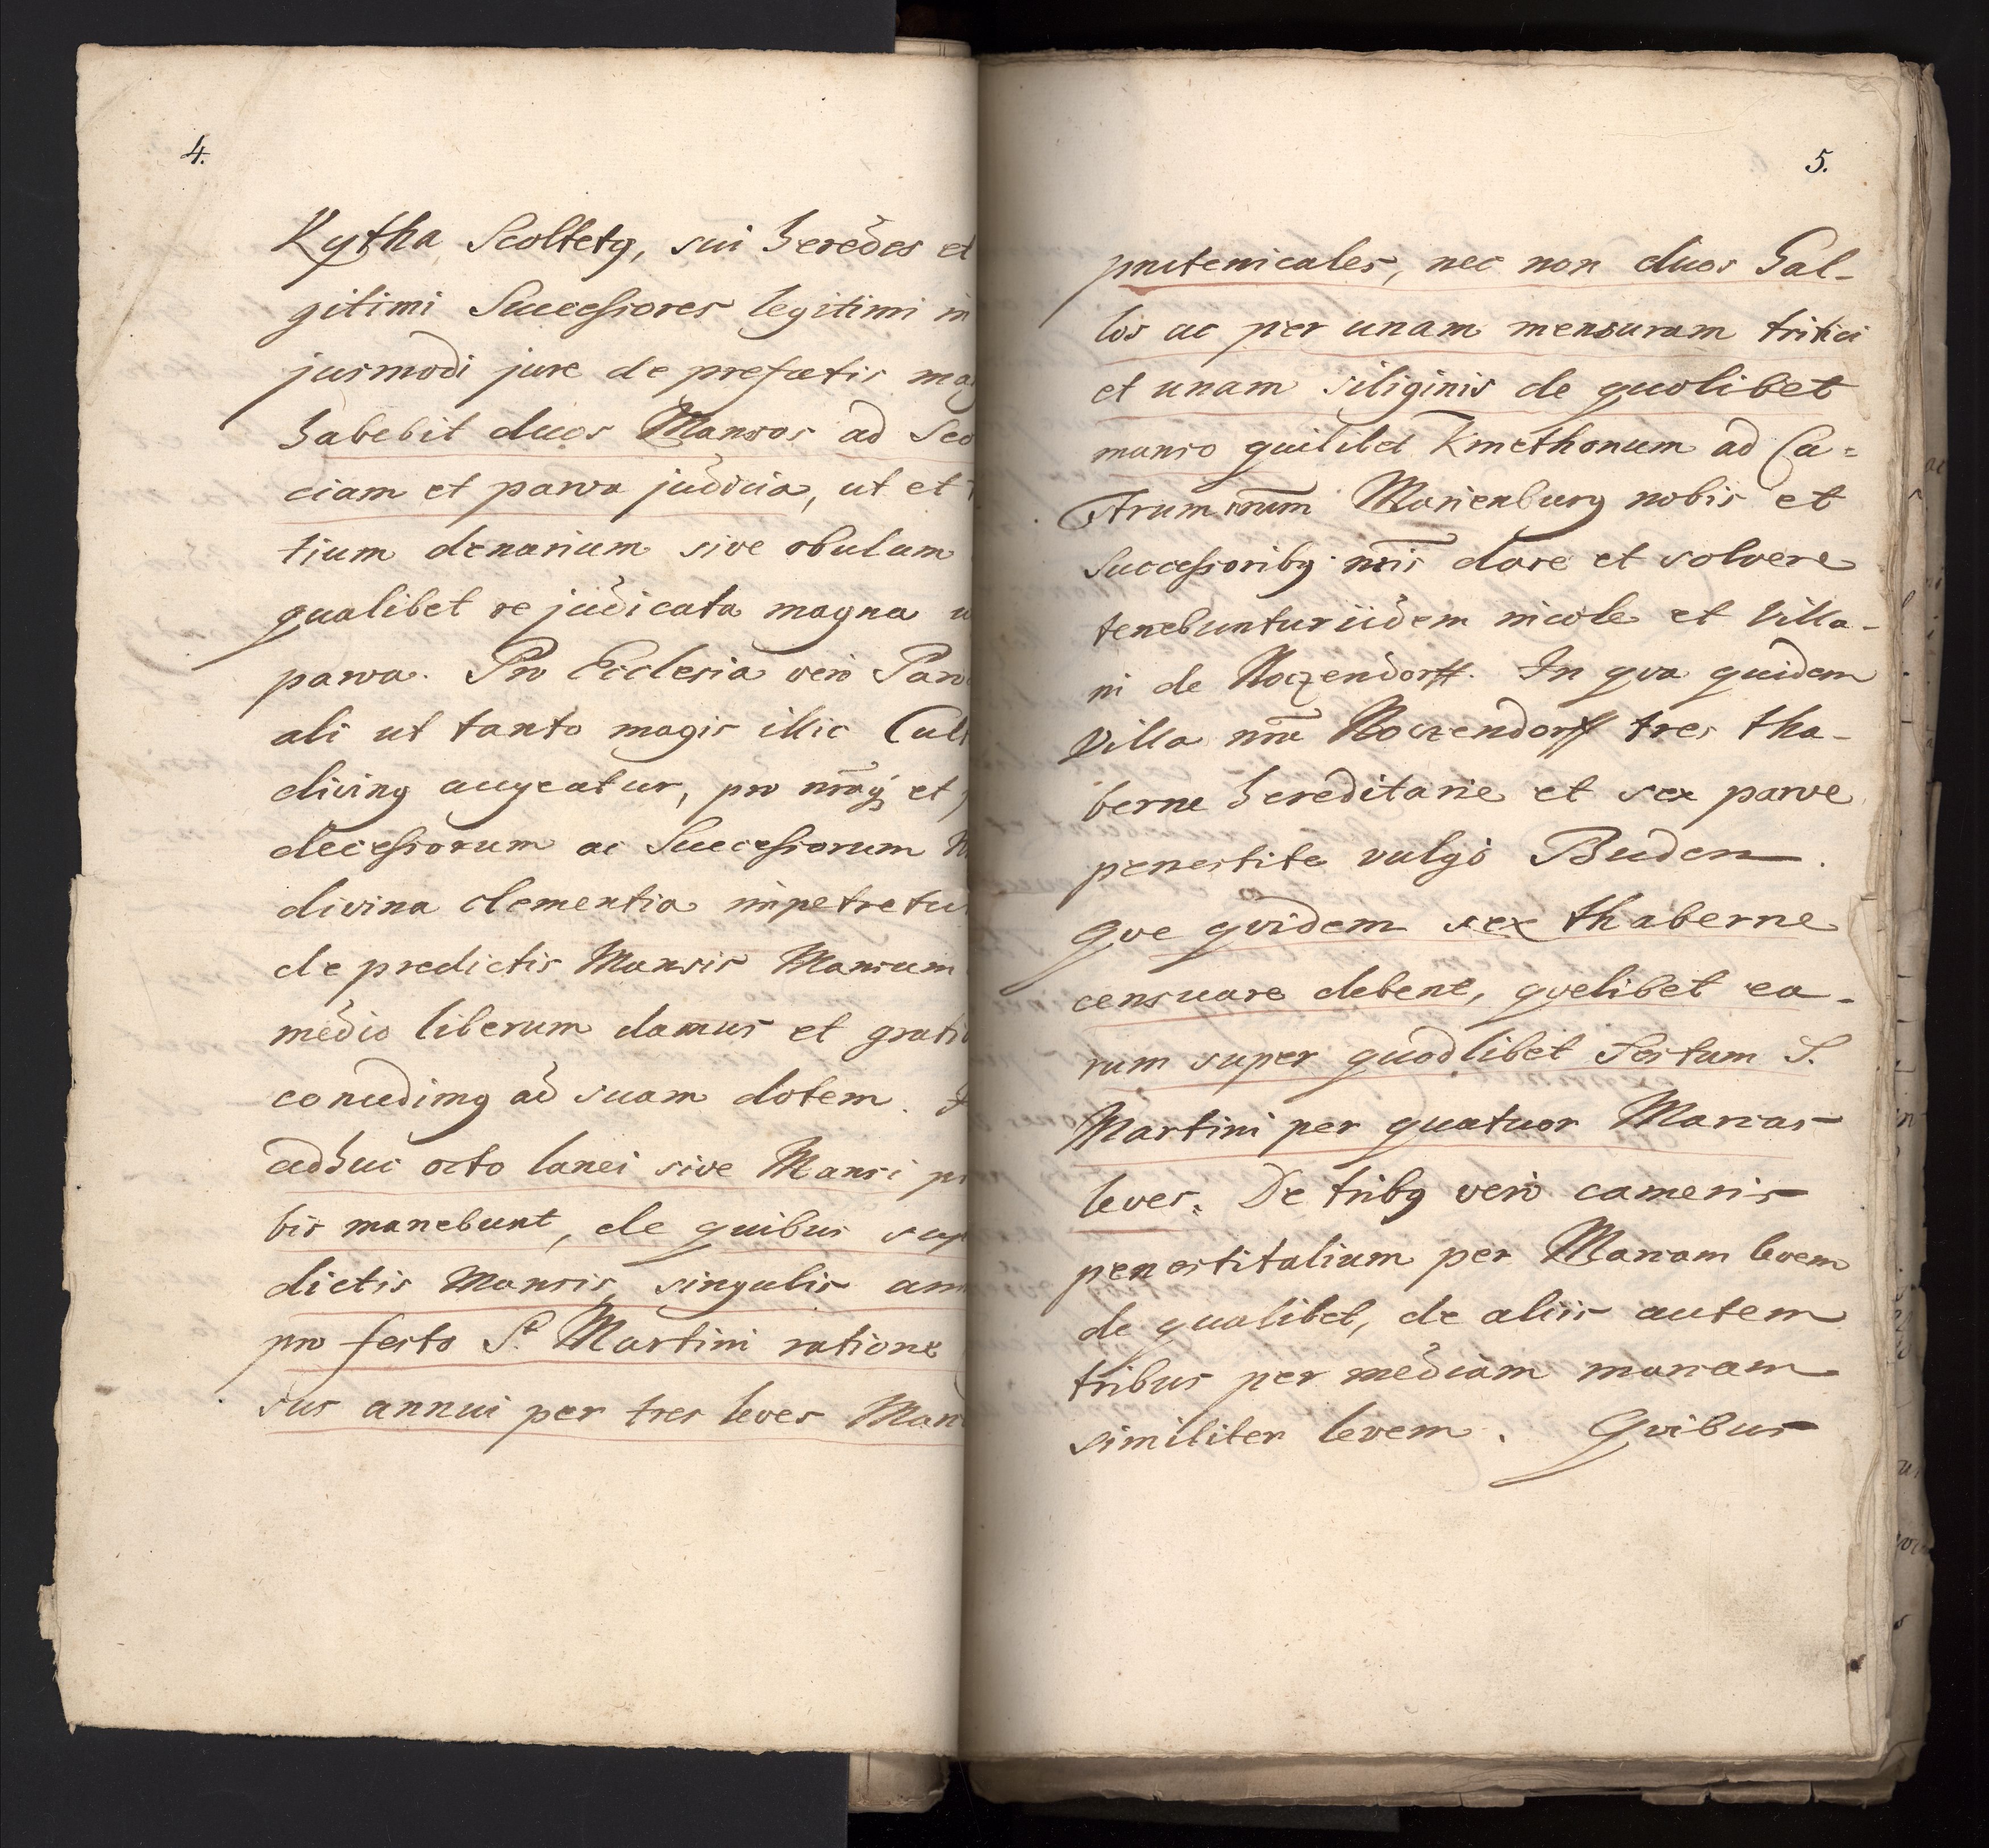 4.
Kytha Scoltetq, sui heredes et
gitimi Successores legitimi in
jusmodi jure de prefatis ma
habebit duos Mansos ad Sco
ciam et parva judicia, ut et
tium denarium sive obulum
qualibet re judicata magna
parva. Pro Ecclesia vero Paro
ali ut tanto magis illic Cult
divinq augeatur, pro nrãq; et
decessorum ac Successorum
divina clementia impetretur
de predictis Mansis Mansum
medio liberum damus et grati
concedimq ad suam dotem.
adhuc octo lanei sive Mansi
bis manebunt, de quibus
dictis Mansis singulis ann
pro festo St Martini ratione
sus annui per tres leves Mar
5.
prutenicales, nec non duos Gal-
los ac per unam mensuram tritici
et unam siliginis de quolibet
manso quilibet Kmethonum ad Ca=
strum nrum̃ Marienburg nobis et
Successoribq nris̃ dare et solvere
tenebuntur iidem incole et Villa-
ni de Noczendorff. In qva quidem
Villa nrã Noczendorff tres tha-
berne hereditarie et sex parve
penestite vulgo Buden.
Qve qvidem sex thaberne
censuare debent, qvelibet ea-
rum super quodlibet Festum S.
Martini per quatuor Marcas
leves. De tribq vero cameris
penestitalium per Marcam levem
de qualibet, de aliis autem
tribus per mediam marcam
similiter levem. Qvibus